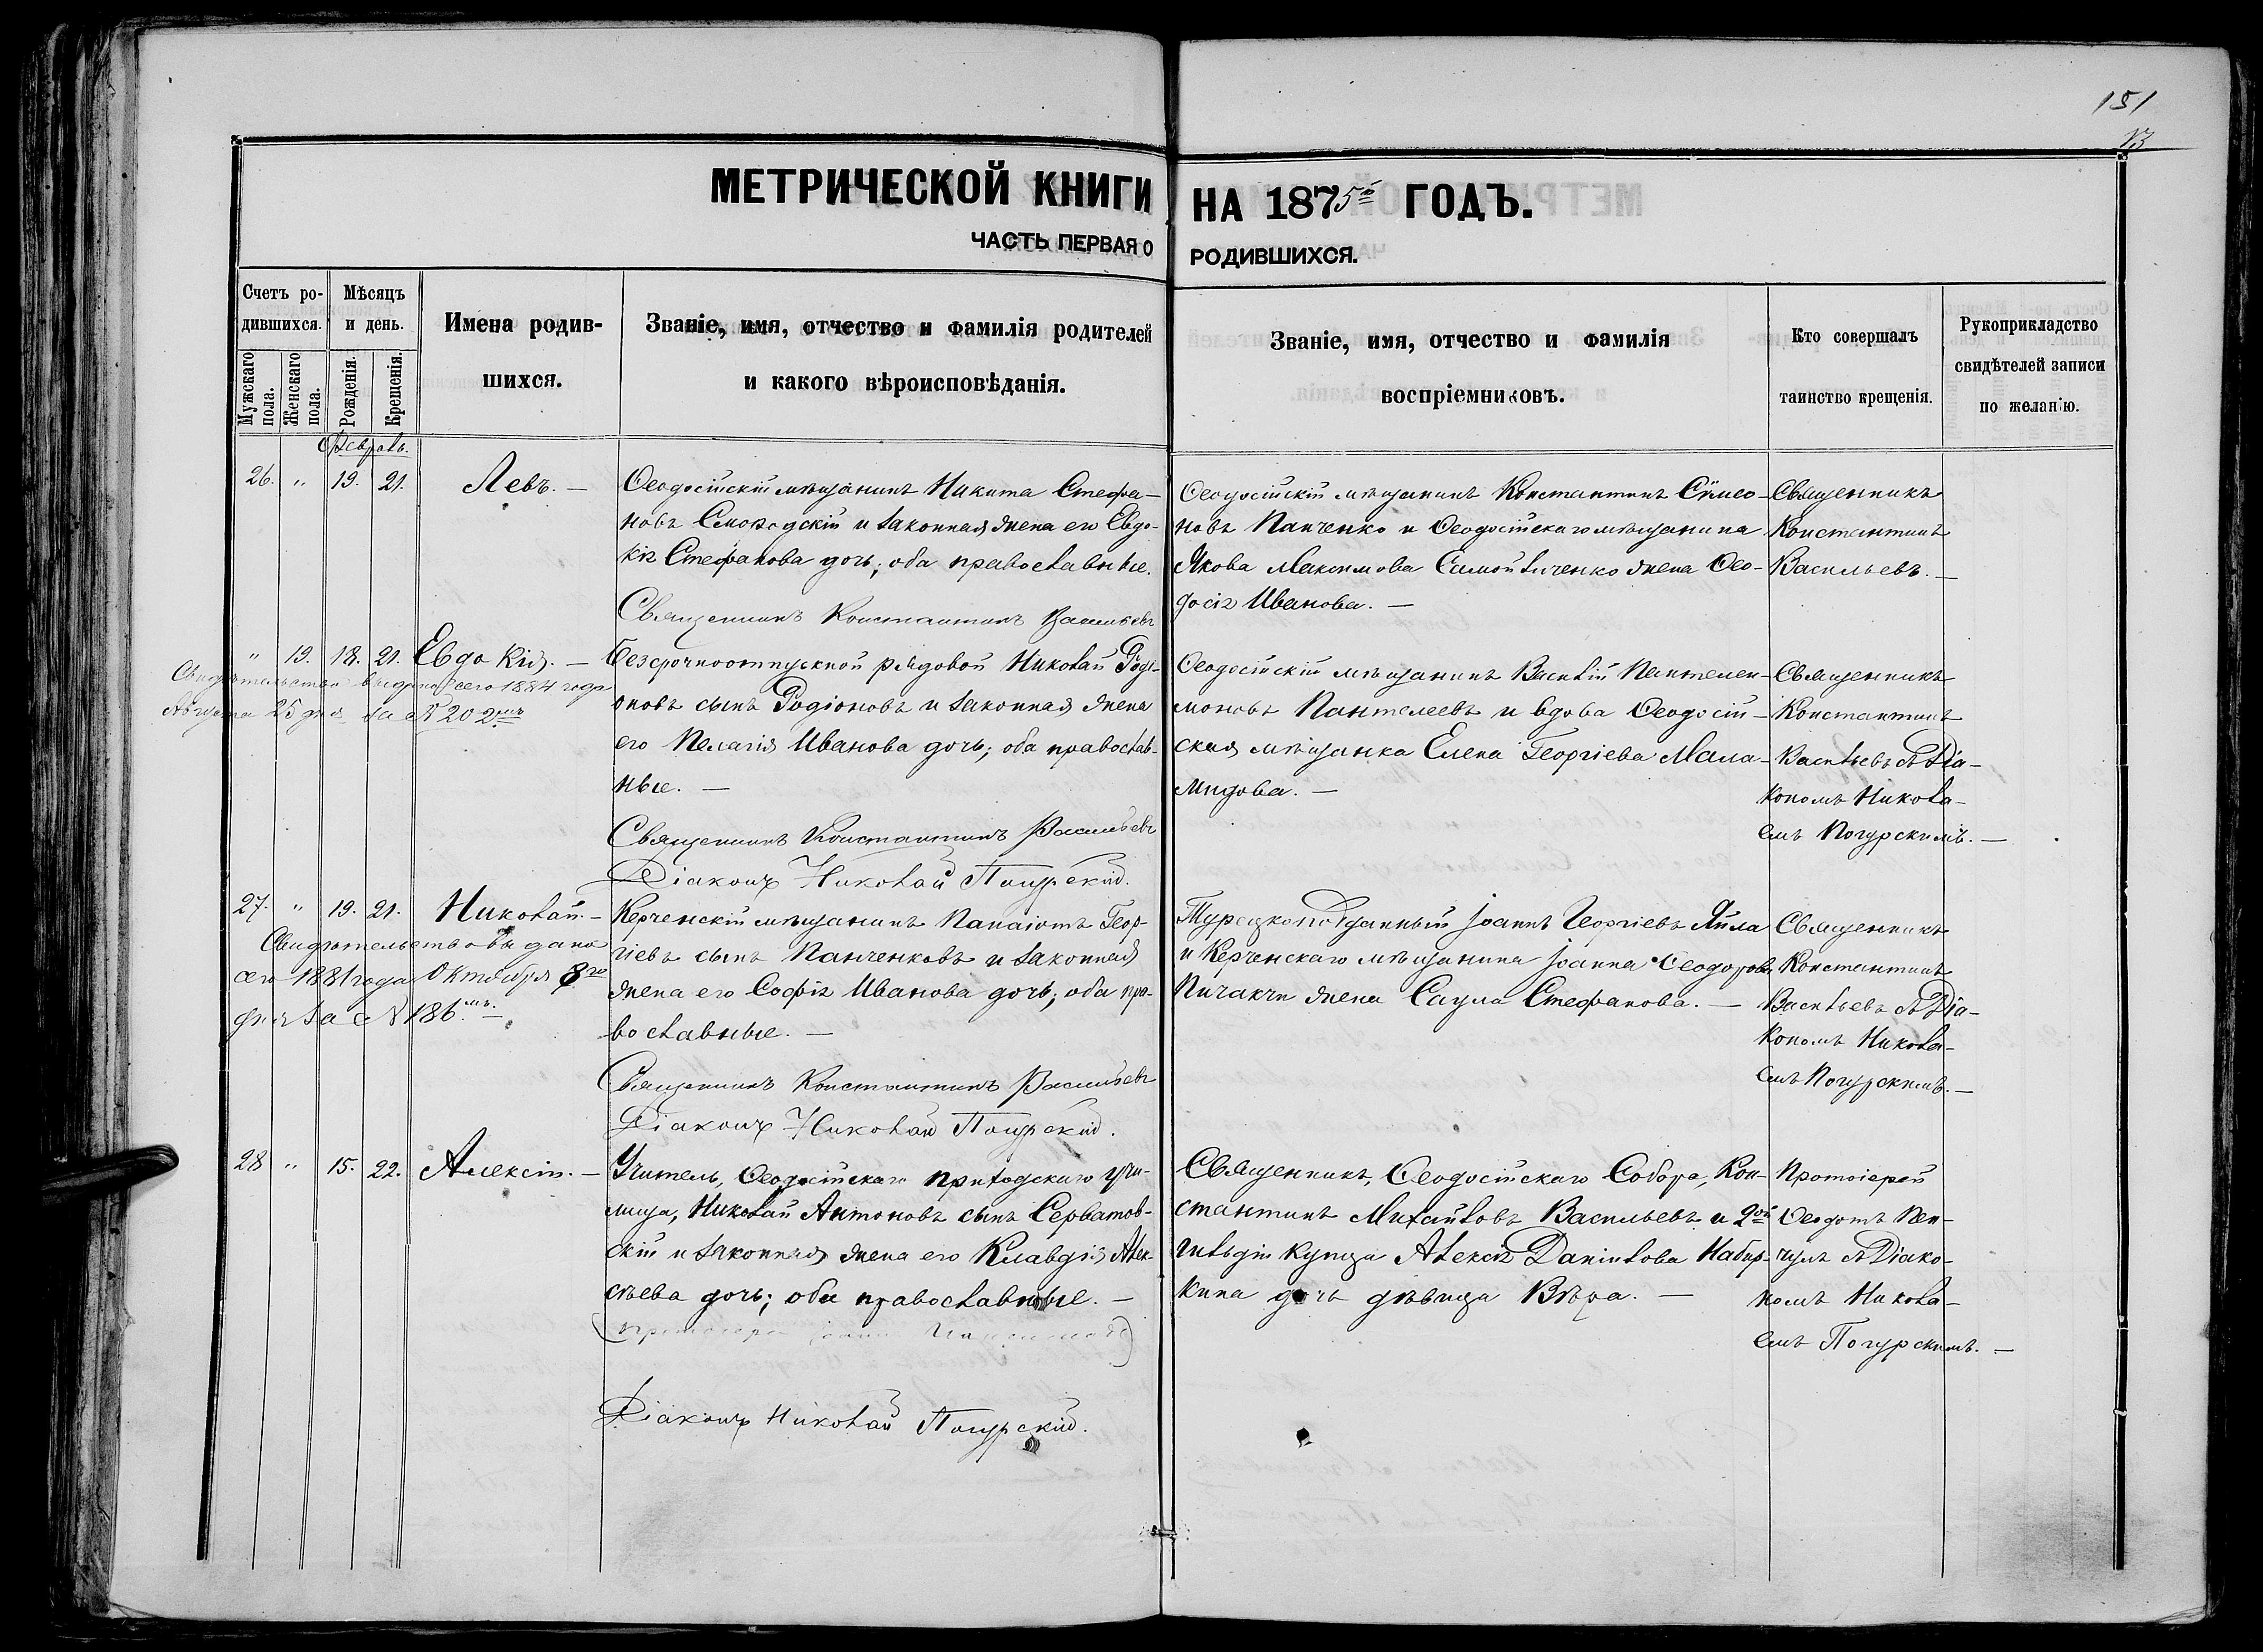 151
МЕТРИЧЕСКОЙ КНИГИ НА 1875й ГОДЪ.
ЧАСТЬ ПЕРВАЯ О РОДИВШИХСЯ.
Счетъ ро-
дившихся.
Мужскаго пола.
Женскаго пола.
Мѣсяцъ
и день.
Рожденія.
Крещенія.
Имена родив-
шихся.
Званіе, имя, отчество и фамилія родителей
и какого вѣроисповѣданія.
Званіе, имя, отчество и фамилія
воспріемниковъ.
Кто совершалъ
таинство крещенія.
Рукоприкладство
свидѣтелей записи
по желанію.
Февраль.
26. " 19. 21. Левъ. —
Ѳеодосійскій мѣщанинъ Никита Стефа-
новъ и законная жена его Евдо-
кія Стефанова дочь; оба православные.
Священникъ Константинъ Васильевъ
Ѳеодосійскій мѣщанинъ Константинъ
новъ Панченко и Ѳеодосійскаго мѣщанина
Якова Максимова Самойличенко жена Ѳео-
досія Иванова. —
Священникъ
Константинъ
Васильевъ. —
" 19. 18. 21. Евдокія. —
Свидѣтельство выдано сего 1884 года
Августа 25 дня за № 202мъ
Безсрочноотпускной рядовой Николай Роді-
оновъ сынъ Родіоновъ и законная жена
его Пелагія Иванова дочь; оба православ-
ные. —
Священникъ Константинъ Васильевъ
Діаконъ Николай Погурскій.
Ѳеодосійскій мѣщанинъ Василій Пантелеи-
моновъ Пантелеевъ и вдова Ѳеодосій-
ская мѣщанка Елена Георгіева Мала-
мидова. —
Священникъ
Константинъ
Васильевъ съ Діа-
кономъ Никола-
емъ Погурскимъ. —
27. " 19. 21. Николай. —
Свидѣтельство выдано
сего 1881 года Октября 8го
дня за № 186.мъ
Керченскій мѣщанинъ Панаіотъ Геор-
гіевъ сынъ Панченковъ и законная
жена его Софія Иванова дочь; оба пра-
вославные. —
Священникъ Константинъ Васильевъ
Діаконъ Николай Погурскій.
Турецкоподданный Іоаннъ Георгіевъ Яйла
и Керченскаго мѣщанина Іоанна Ѳеодорова
Пичакчи жена Саула Стефанова. —
Священникъ
Константинъ
Васильевъ съ Діа-
кономъ Никола-
емъ Погурскимъ. —
28 " 15. 22. Алексій. —
Учитель, Ѳеодосійскаго приходскаго учи-
лища, Николай Антоновъ сынъ Серватов-
скій и законная жена его Клавдія Алек-
сѣева дочь; оба православные. —
Діаконъ Николай Погурскій.
Священникъ, Ѳеодосійскаго Собора, Кон-
стантинъ Михайловъ Васильевъ и 2ой
гильдіи купца Алексія Даніилова
кина дочь дѣвица Вѣра. —
Протоіерей
Ѳеодотъ Пен-
чулъ съ Діако-
номъ Никола-
емъ Погурскимъ. —